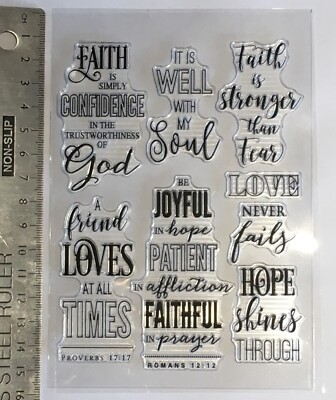 FAITH
IS
SIMPLY
CONFIDENCE
IN THE
TRUSTWORTHINESS
OF
God
IT IS
WELL
WITH
MY
Soul
Faith
is
stronger
than
Fear
A
friend
LOVES
AT ALL
TIMES
PROVERBS 17:17
BE
JOYFUL
in hope
PATIENT
in affliction
FAITHFUL
in prayer
ROMANS 12:12
LOVE
NEVER
fails
HOPE
shines
THROUGH
CM
1
2
3
4
5
6
7
8
9
10
11
12
13
14
15
16
NON-SLIP
S STEEL RULER